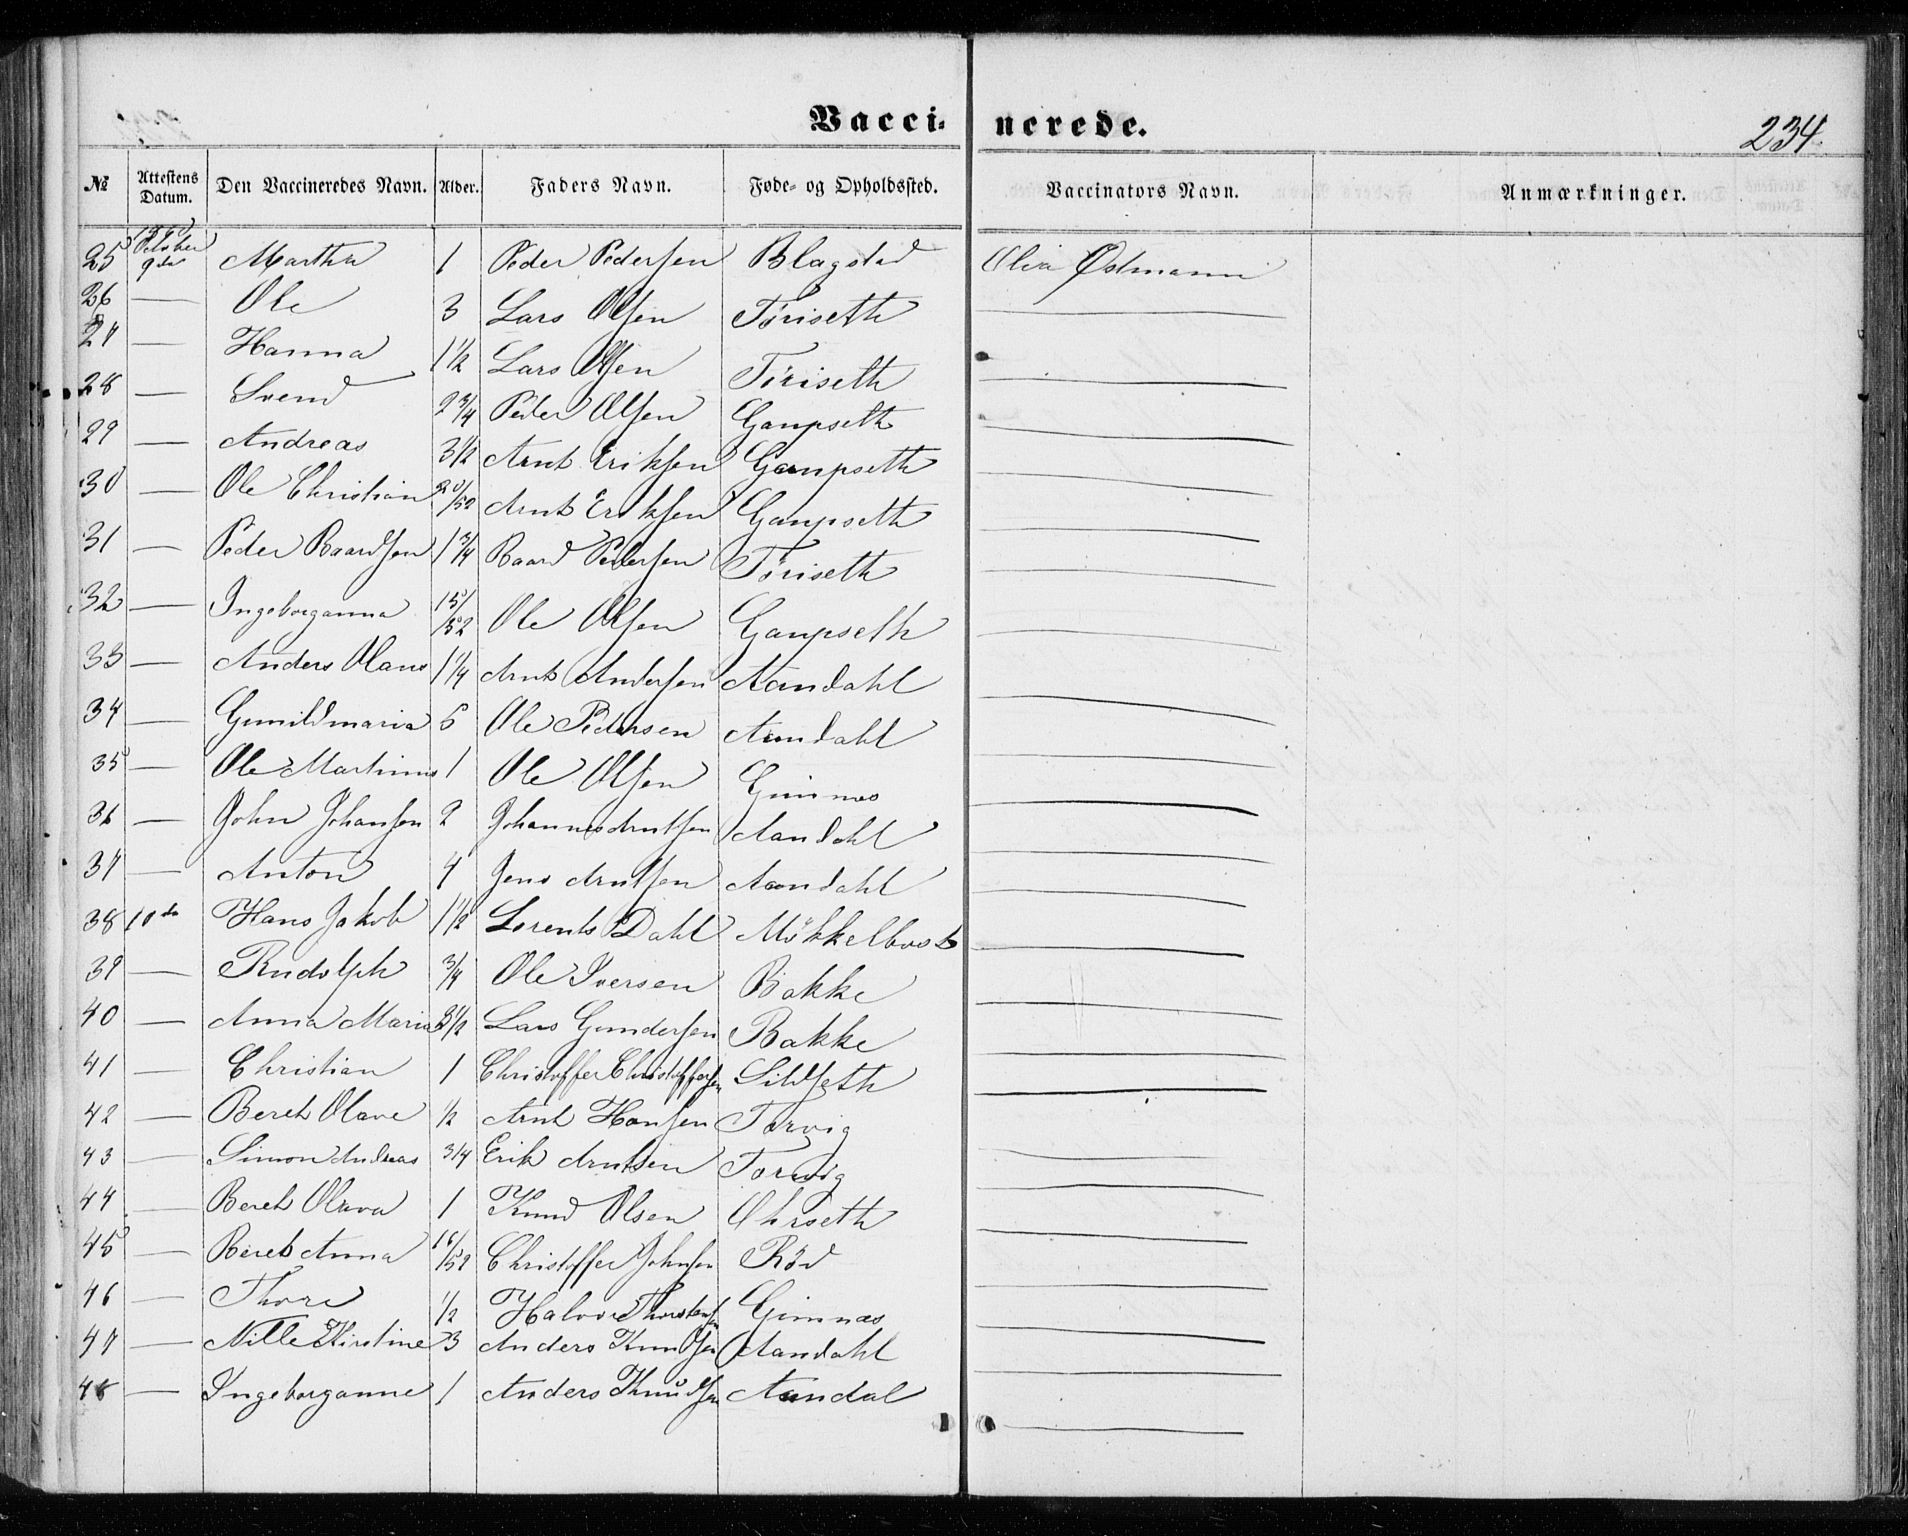 Vaccinerede.
234.
№ Attestens Datum. Den Vaccineredes Navn. Alder. Faders Navn. Føde- og Opholdssted. Vaccinators Navn. Anmærkninger.
25 October 9de Martha 1 Peder Pedersen Blagstad Olia Østmann
26 — Ole 3 Lars Olsen Töriseth —
27 — Hanna 1 1/2 Lars Olsen Töriseth —
28 — Svend 2 3/4 Peder Olsen Gaupseth —
29 — Andreas 3 1/2 Arnt Eriksen Gaupseth —
30 — Ole Christian 20/52 Arnt Eriksen Gaupseth —
31 — Peder Baardsen 1 3/4 Baard Pedersen Töriseth —
32 — Ingeborganna 15/52 Ole Olsen Gaupseth —
33 — Anders Olaus 1 1/4 Arnt Andersen Aandahl —
34 — Gunildmaria 5 Ole Pedersen Aandahl —
35 — Ole Martinus 1 Ole Olsen Gimnes —
36 — John Johansen 2 Johannes Arntsen Aandahl —
37 — Anton 4 Jens Arntsen Aandahl —
38 10de Hans Jakob 1 1/2 Lorents Dahl Mökkelbost —
39 — Rudolph 3/4 Ole Iversen Bakke —
40 — Anna Maria 3 1/2 Lars Gundersen Bakke —
41 — Christian 1 Christoffer Christoffersen Sildseth —
42 — Bereth Olave 1/2 Arnt Hansen Torvig —
43 — Simon Andreas 3/4 Erik Arntsen Torvig —
44 — Bereth Olava 1 Knud Olsen Ohrseth —
45 — Beret Anna 16/52 Christoffer Johnsen Röd —
46 — Thore 1/2 Halvor Thorstensen Gimnæs —
47 — Nille Kirstine 3 Anders Knudsen Aandahl —
48 — Ingeborganne 1 Anders Knudsen Aandal —